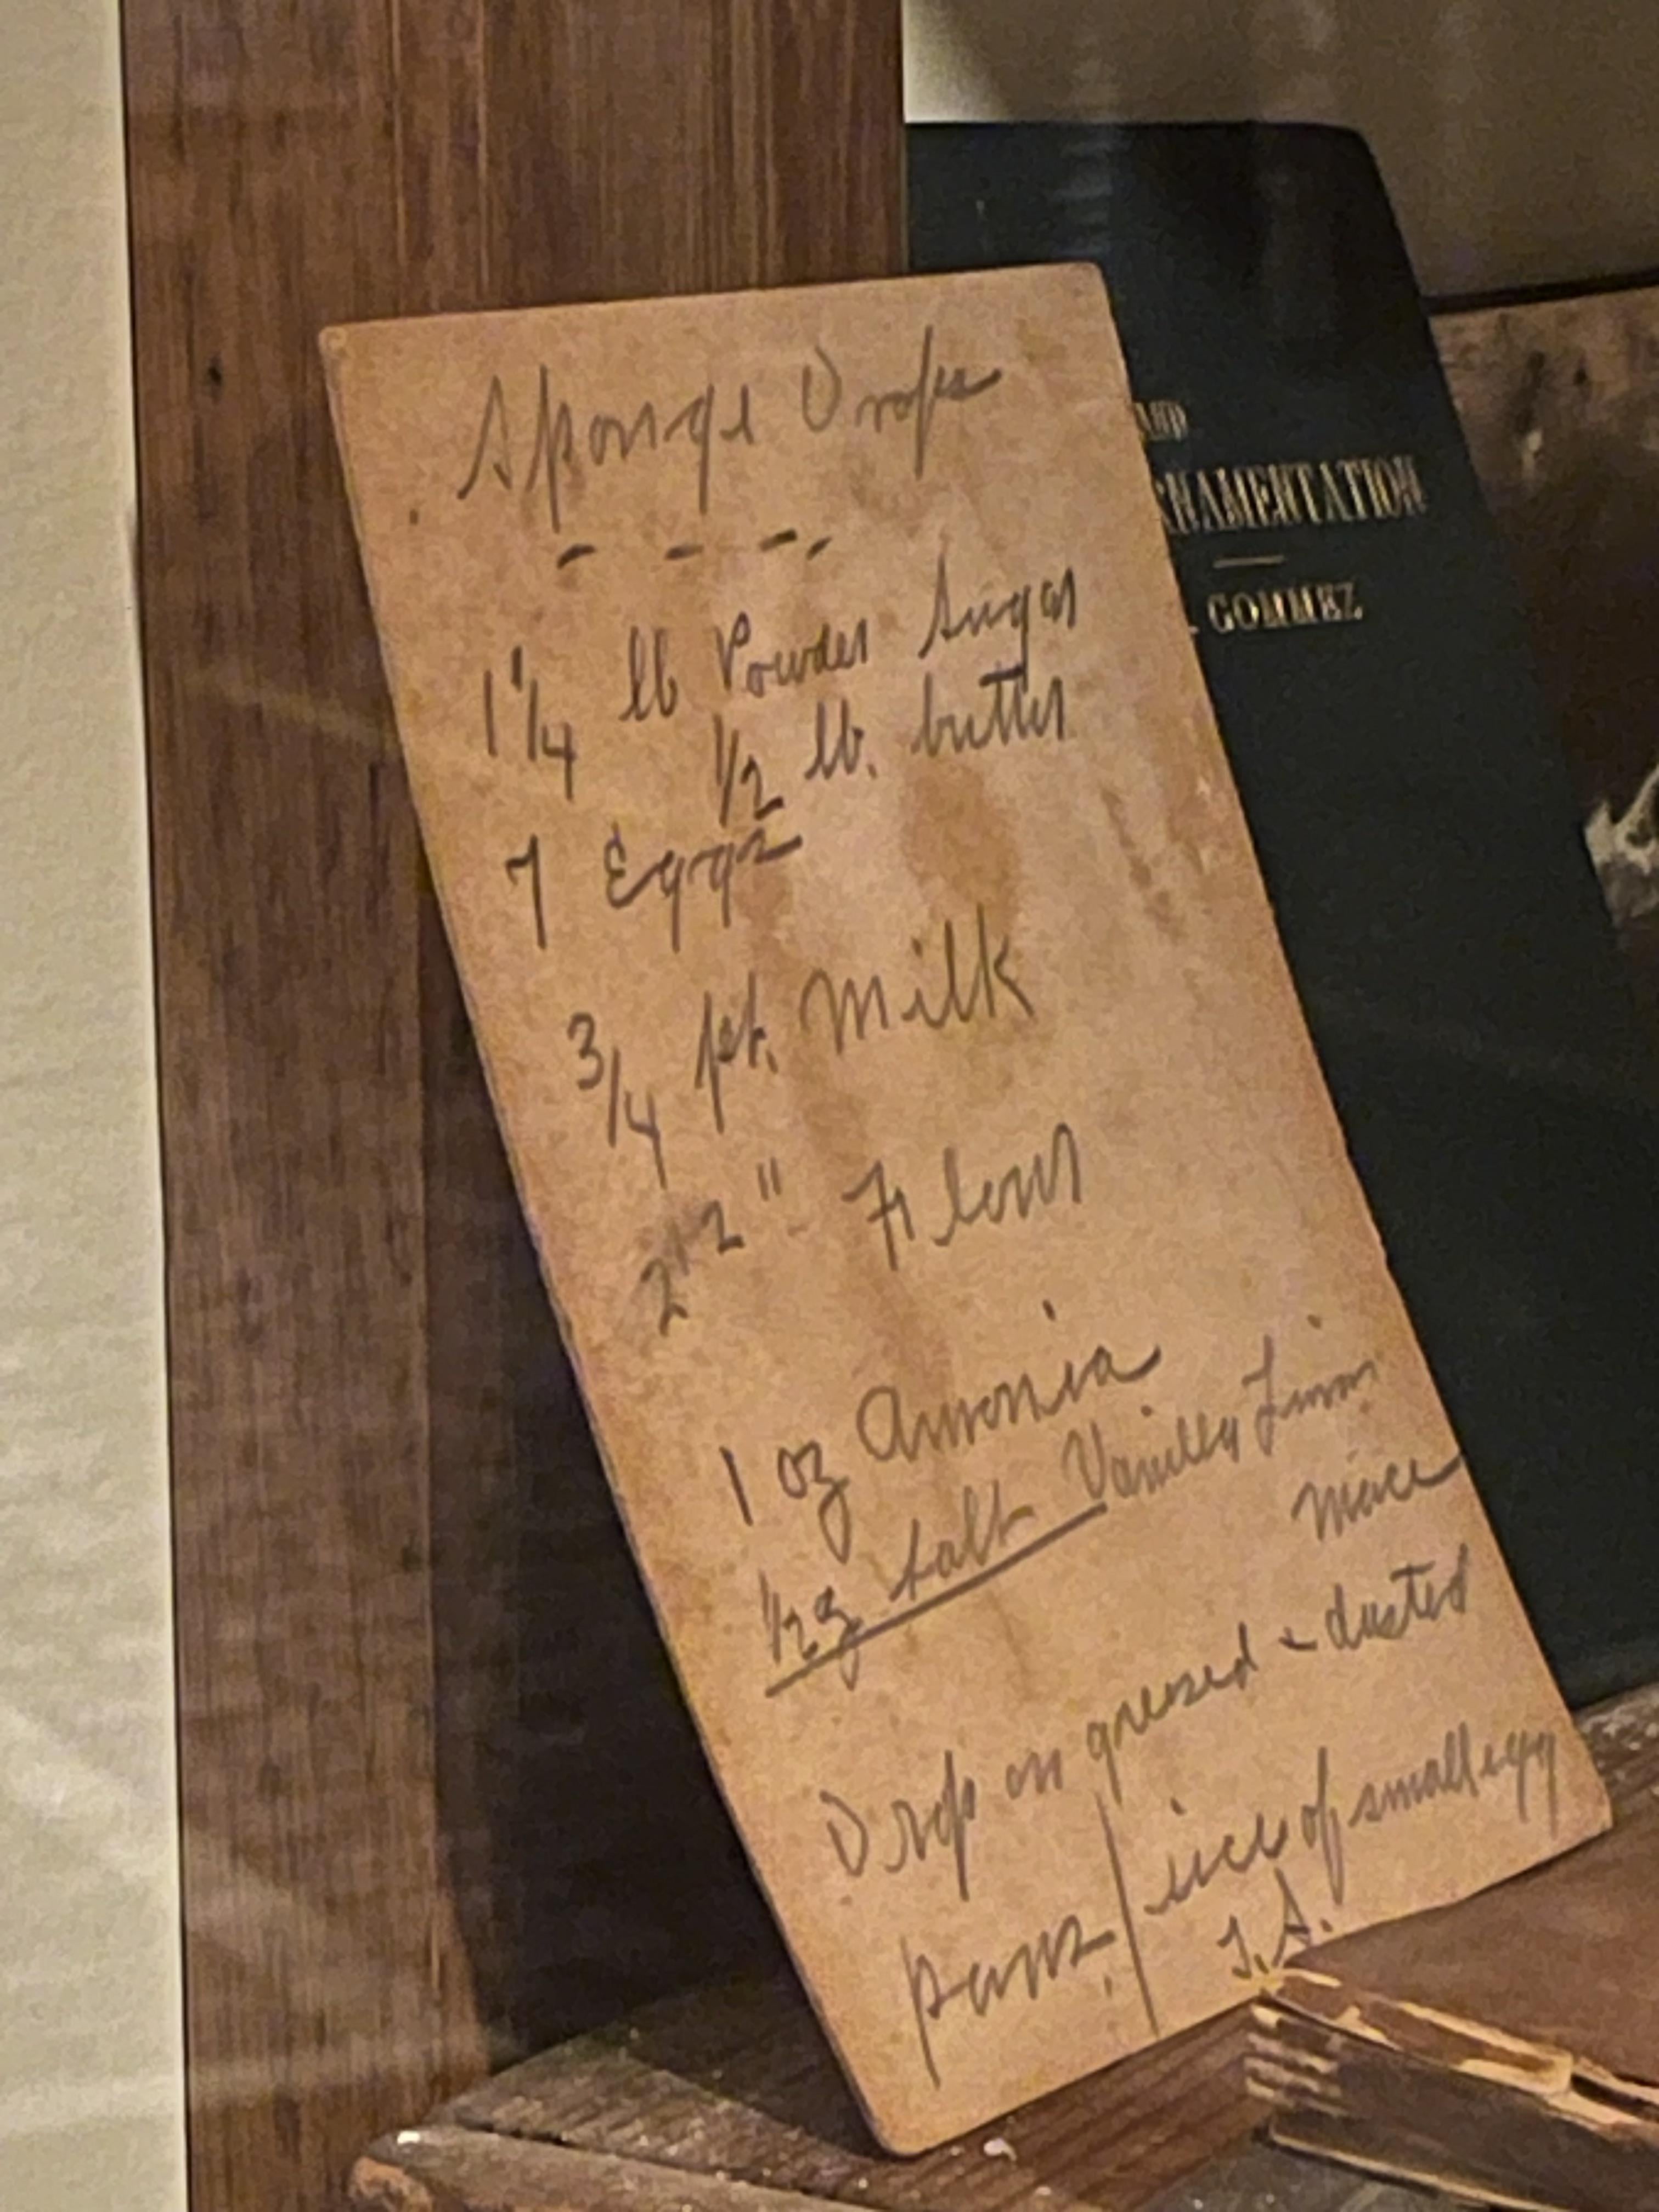 Sponge Drops
- - - -
1 1/4 lb Powder Sugar
1/2 lb. butter
7 Eggs
3/4 pt. Milk
2 1-2 " Flour
1 oz Amonia
1/2 oz salt Vanilla Limon
Mace
Drop on greased & dusted
pans. / size of small egg
T.S.
AND
RNAMENTATION
. GOMMEZ